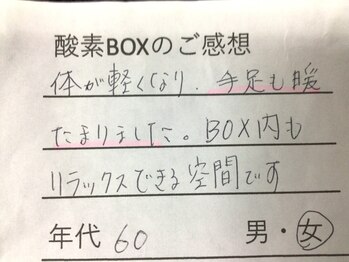 酸素BOXのご感想
体が軽くなり、手足も暖
たまりました。BOX内も
リラックスできる空間です
年代 60 男・女